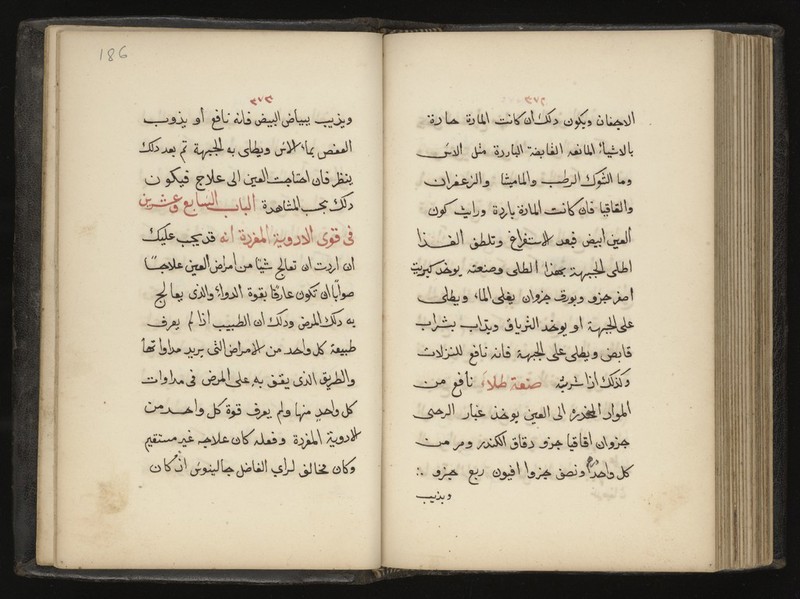 ٣٧٢
الاجفان ويكون ذلك ان كانت المادة حادة
بالاشياء المانعه القابضة الباردة مثل الاس
وما الشوك الرطب والماميثا والزعفران
والقاقيا فان كانت المادة باردة ورايت كون
العين ابيض فبعد الاستفراغ وتلطف الغذا
اطلى الجبهة بهذا الطلى وصنعته يوخذ كبريت
اصفر جزو وبورق جزوان يغلى الماء ويطلى
على الجبهة او يوخذ الترياق ويذاب بشراب
قابض ويطلى على الجبهة فانه نافع للنزلات
وكذلك اذا شربته صنعة طلاء نافع من
المواد المنحدرة الى العين يوخذ غبار الرحى
جزوان اقاقيا جزو دقاق الكندر ومر من
كل واحد ونصف جزوا افيون ربع جزو
ويذيب
186
٣٧٣
ويذيب ببياض البيض فانه نافع او يذوب
العفص بماء الاس ويطلى به الجبهة ثم بعد ذلك
ينظر فان احتاجت العين الى علاج فيكون
ذلك بحسب المشاهدة الباب السابع وعشرين
فى قوى الادوية المفردة انه قد يجب عليك
ان اردت ان تعالج شيئا من امراض العين علاجا
صوابا ان تكون عارفا بقوة الدواء والذى يعالج
به ذلك المرض وذلك ان الطبيب اذا لم يعرف
طبيعة كل واحد من الامراض التى يريد مداواتها
والطريق الذى يقف به على المرض فى مداوات
كل واحد منها ولم يعرف قوة كل واحد من
الادوية المفردة وفعله كان علاجه غير مستقيم
وكان مخالف لراى الفاضل جالينوس اذ كان